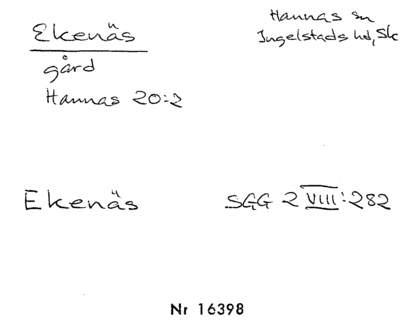 Ekenäs
gård
Hannas 20:2
Hannas sn
Ingelstads hd, Sk
Ekenäs
SGG 2 VIII:282
Nr 16398